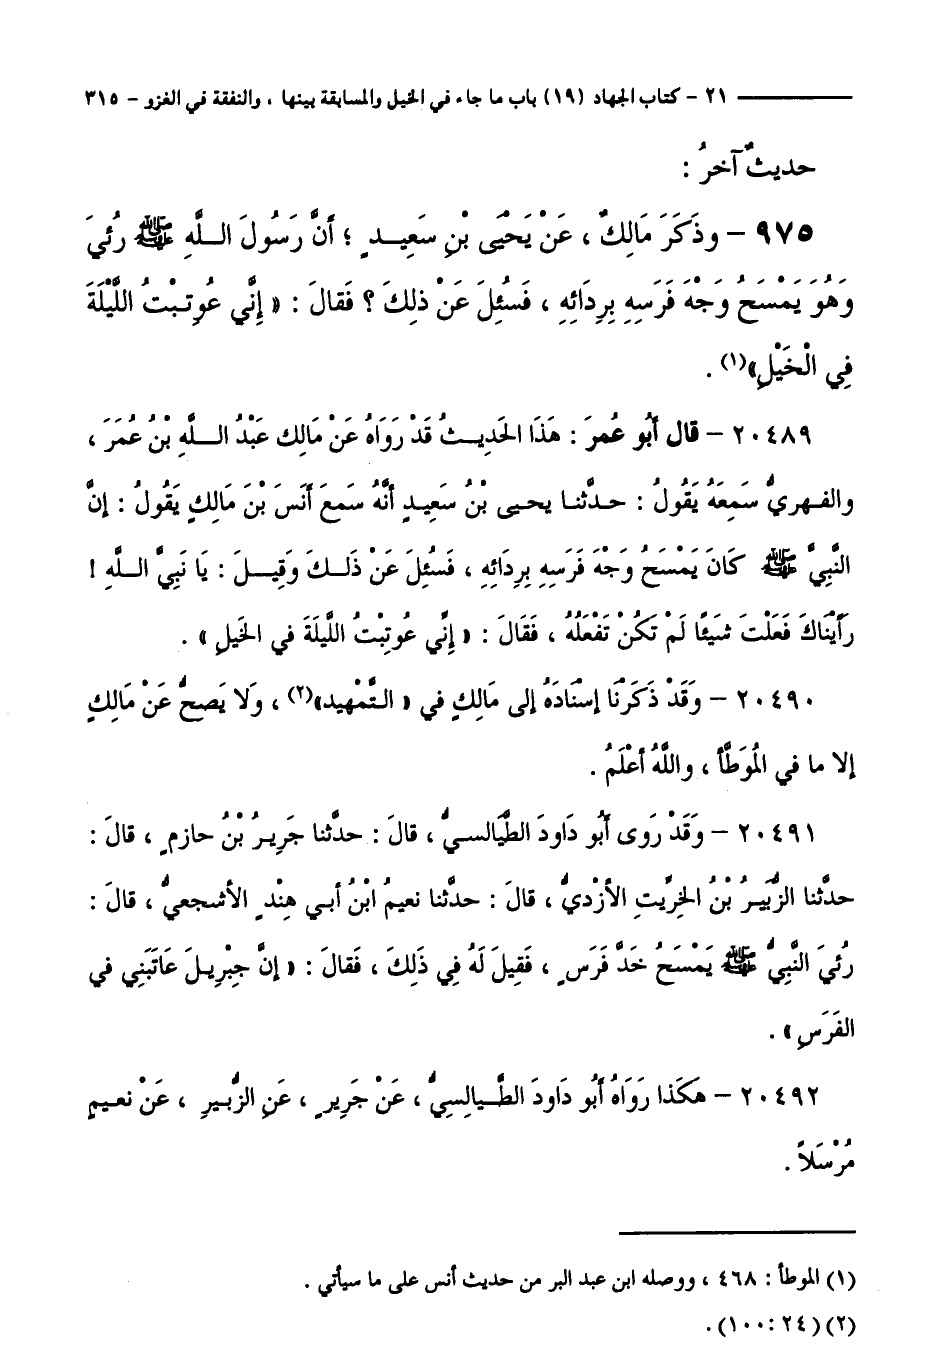 ٢١ - كتاب الجهاد (١٩) باب ما جاء في الخيل والمسابقة بينها ، والنفقة في الغزو - ٣١٥
حديثٌ آخرُ :
٩٧٥ - وذَكَرَ مَالِكٌ ، عَنْ يَحْيَى بْنِ سَعِيدٍ ؛ أنَّ رَسُولَ اللَّهِ ﷺ رُئِيَ
وَهُوَ يَمْسَحُ وَجْهَ فَرَسِهِ بِرِدَائِهِ ، فَسُئِلَ عَنْ ذلِكَ ؟ فَقالَ : « إِنَّي عُوتِبْتُ اللَّيْلَةَ
فِي الْخَيْلِ»(١) .
٢٠٤٨٩ - قال أبُو عُمرَ : هَذَا الحَديثُ قَدْ رَوَاهُ عَنْ مَالِك عَبْدُ اللَّهِ بْنُ عُمَرَ ،
والفهريُّ سَمِعَهُ يَقُولُ : حدَّثنا يحيى بْنُ سَعِيدٍ أنَّهُ سَمعَ أنَسَ بْنَ مَالِكٍ يَقُولُ : إنَّ
النَّبِيَّ ﷺ كَانَ يَمْسَحُ وَجْهَ فَرَسِهِ بِرِدَائِهِ ، فَسُئِلَ عَنْ ذَلِكَ وَقِيلَ : يَا نَبِيَّ اللَّهِ !
رَأيْنَاكَ فَعَلْتَ شَيئًا لَمْ تَكُنْ تَفْعَلُهُ ، فَقَالَ : « إِنَّي عُوتِبْتُ اللَّيلَةَ في الخَيلِ » .
٢٠٤٩٠ - وَقَدْ ذَكَرْنَا إسْنَادَهُ إلى مَالِكٍ في « التَّمْهيد»(٢) ، وَلا يَصحُّ عَنْ مَالِكٍ
إلا ما في المُوَطَّأ ، واللَّهُ أعْلَمُ .
٢٠٤٩١ - وَقَدْ رَوى أبُو دَاودَ الطَّيَالسيُّ ، قالَ : حدَّثنا جَرِيرُ بْنُ حازمٍ ، قالَ :
حدَّثنا الزُّبَيرُ بْنُ الخِرِّيتِ الأزْديُّ ، قالَ : حدَّثنا نعيمُ ابْنُ أبي هِنْدٍ الأشجعيُّ ، قالَ :
رُئيَ النَّبِيُّ ﷺ يَمْسَحُ خَدَّ فَرَسٍ ، فَقِيلَ لَهُ فِي ذَلِكَ ، فَقالَ : « إنَّ جِبْرِيلَ عَاتَبَنِي في
الفَرَسِ » .
٢٠٤٩٢ - هكَذا رَوَاهُ أبُو دَاودَ الطَّيالسِيُّ ، عَنْ جَرِيرٍ ، عَنِ الزُّبيرِ ، عَنْ نعيمٍ
مُرْسَلاً .
(١) الموطأ : ٤٦٨ ، ووصله ابن عبد البر من حديث أنس على ما سيأتي .
(٢) (٢٤ : ١٠٠) .